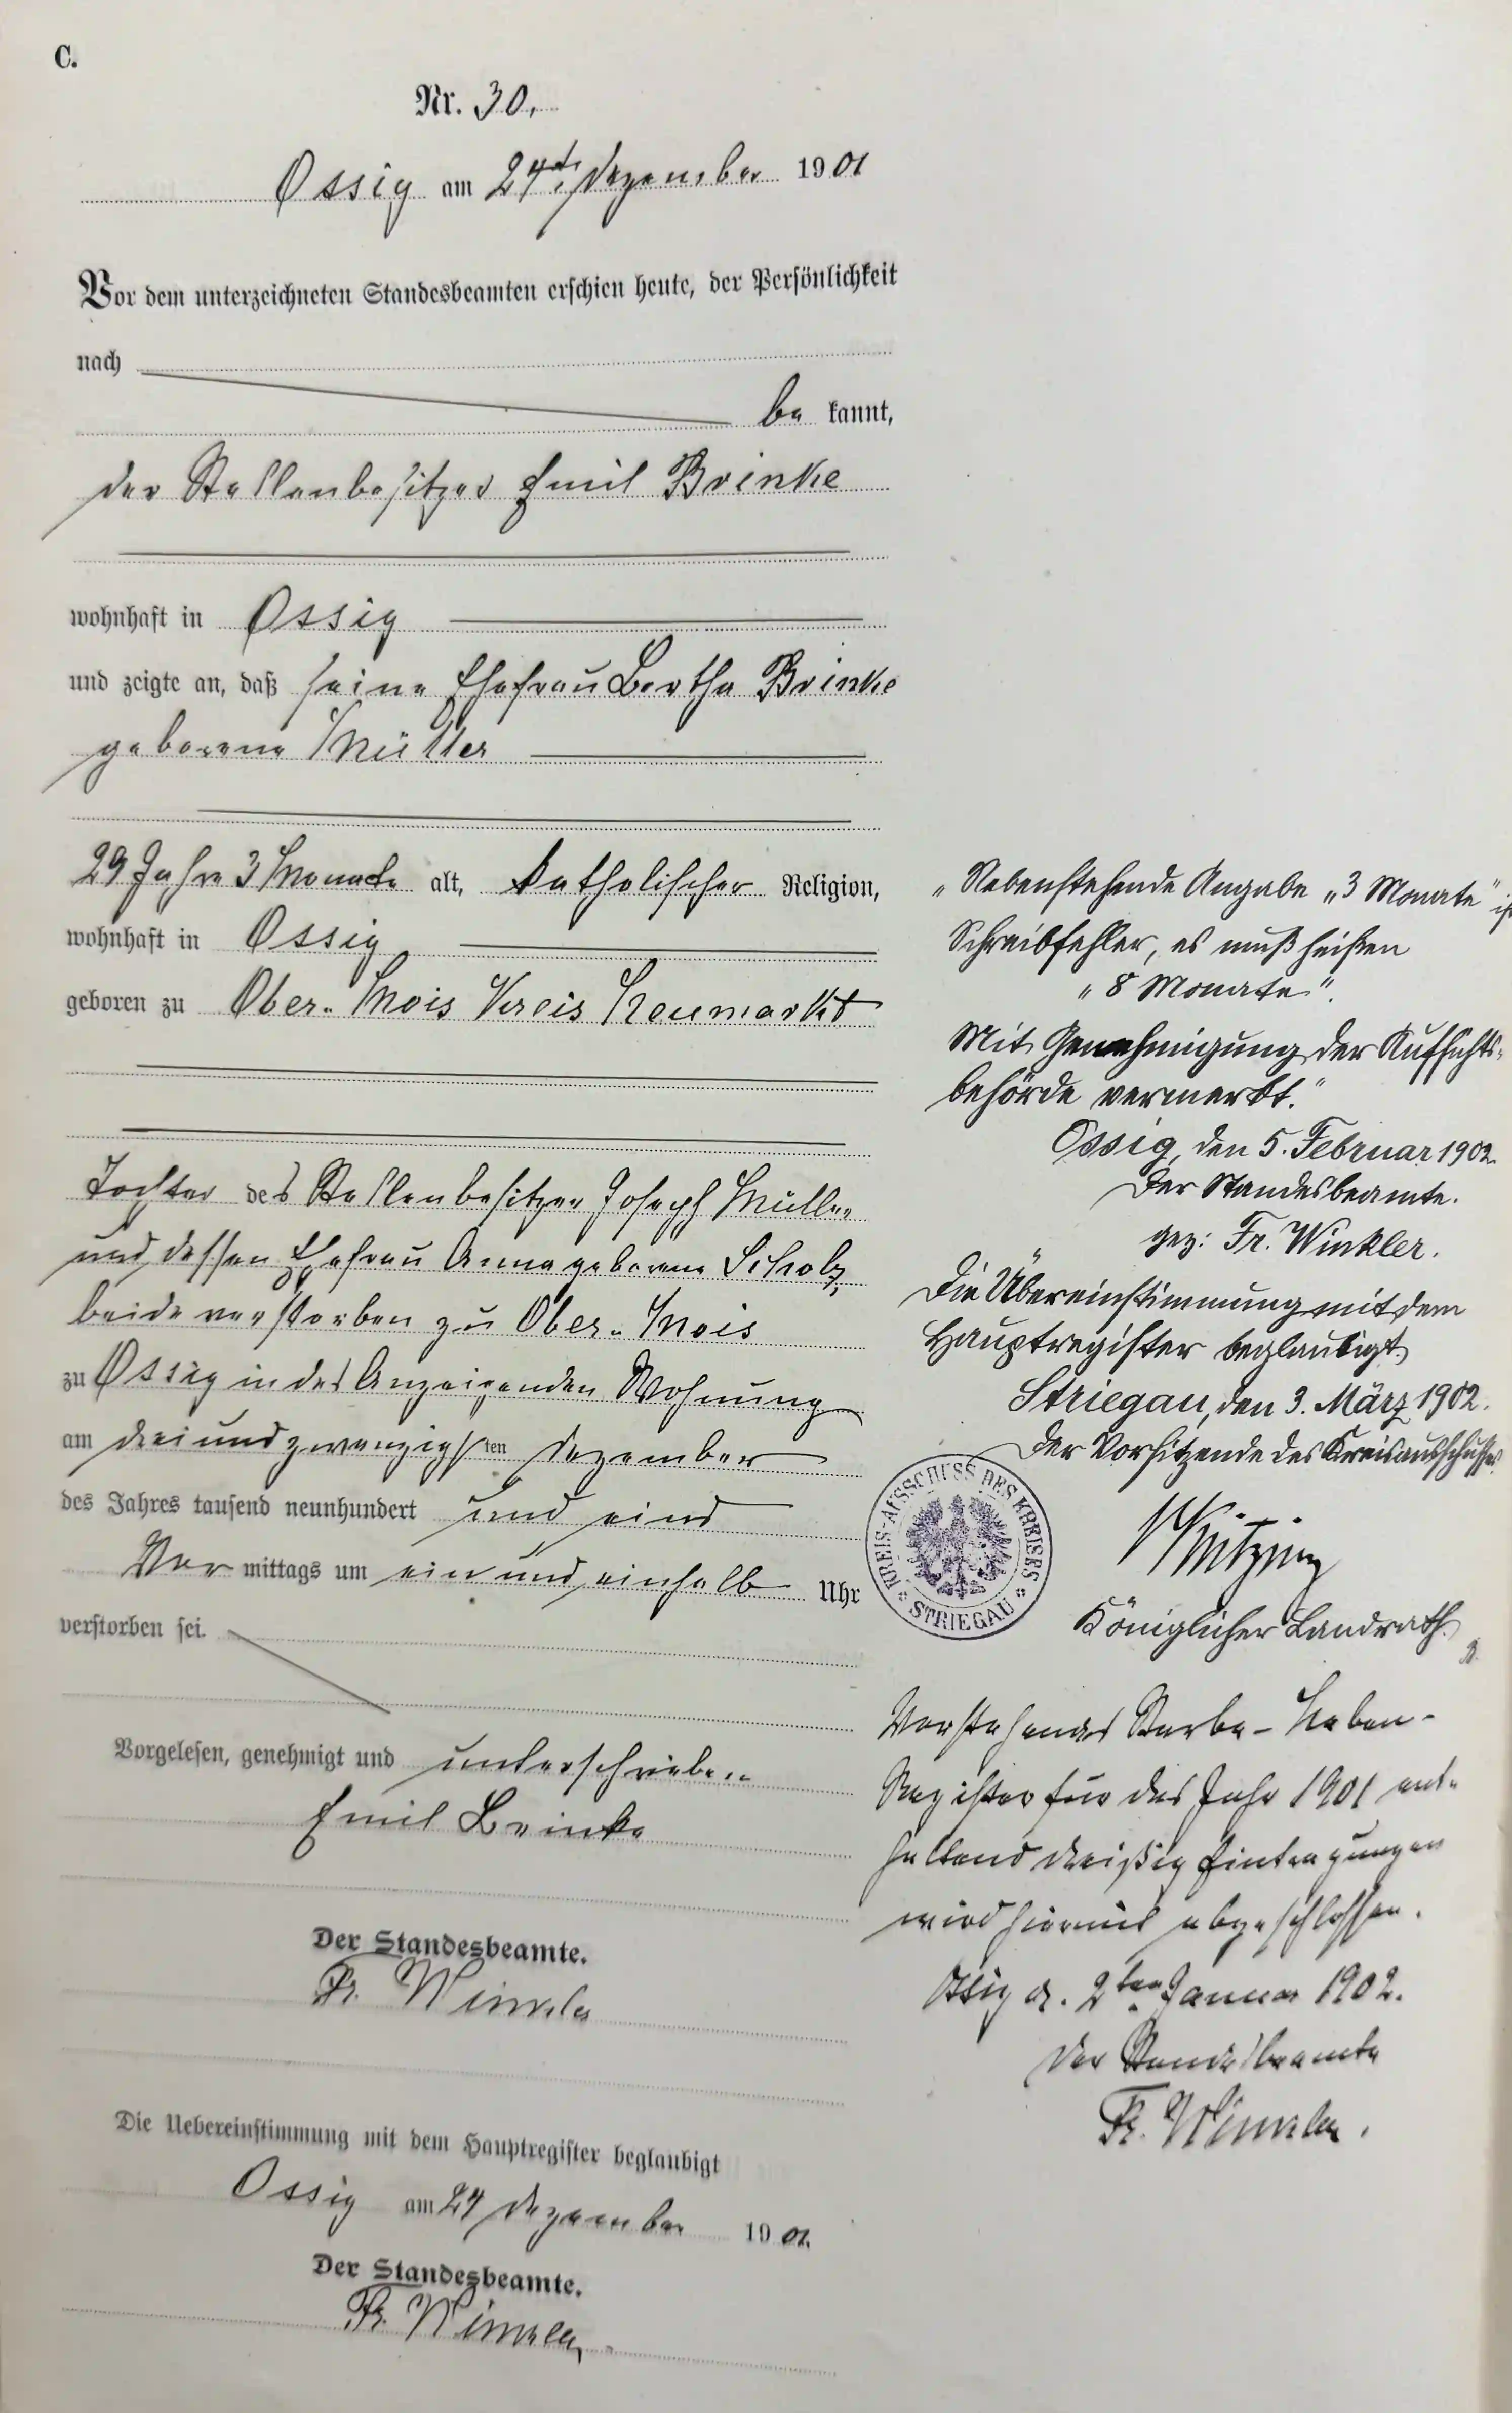 C.
Nr. 30.
Ossig am 24ten Dezember 1901
Vor dem unterzeichneten Standesbeamten erschien heute, der Persönlichkeit
nach
be kannt,
der Stellenbesitzer Emil Brinke
wohnhaft in Ossig
und zeigte an, daß seine Ehefrau Bertha Brinke
geborene Müller
29 Jahre 3 Monate alt, katholischer Religion,
wohnhaft in Ossig
geboren zu Ober-Mois Kreis Neumarkt
Tochter des Stellenbesitzer Joseph Müller
und dessen Ehefrau Anna geborene Scholz,
beide verstorben zu Ober-Mois
zu Ossig in des Anzeigenden Wohnung
am dreiundzwanzigsten Dezember
des Jahres tausend neunhundert und eins
Vor mittags um ein und einhalb Uhr
verstorben sei.
Vorgelesen, genehmigt und unterschrieben
Emil Brinke
Der Standesbeamte.
Fr. Winkler
Die Uebereinstimmung mit dem Hauptregister beglaubigt
Ossig am 24 Dezember 1901.
Der Standesbeamte.
Fr. Winkler.
"Nebenstehende Angabe „3 Monate" ist
Schreibfehler, es muß heißen
„8 Monate".
Mit Genehmigung der Aufsichts-
behörde vermerkt."
Ossig, den 5. Februar 1902.
Der Standesbeamte.
gez: Fr. Winkler.
Die Übereinstimmung mit dem
Hauptregister beglaubigt.
Striegau, den 3. März 1902.
Der Vorsitzende des Kreisausschusses.
KREIS-AUSSCHUSS DES KREISES
* STRIEGAU *
Königlicher Landrath.
Vorstehendes Sterbe-Neben-
Register für das Jahr 1901 ent-
haltend dreißig Eintragungen
wird hiermit abgeschlossen.
Ossig d. 2ten Januar 1902.
Der Standesbeamte
Fr. Winkler.